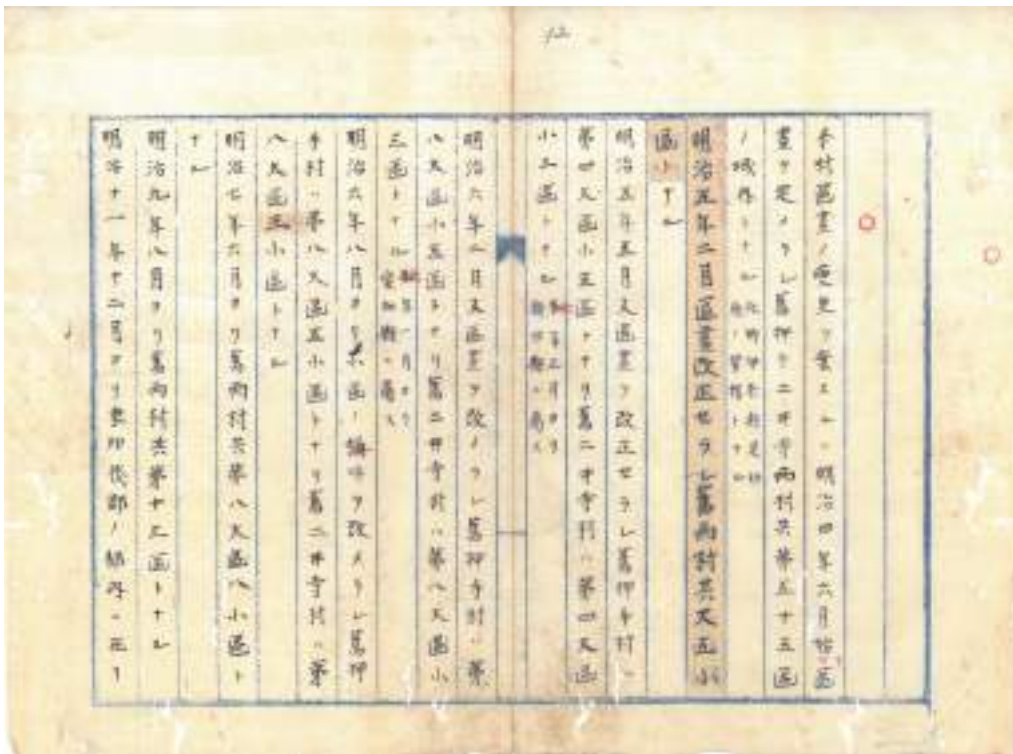 12
本村區畫ノ更更ヲ案スルニ明治四年六月始區
畫ヲ定メラレ舊押手二井寺兩村共第五十五區
ノ域内トナル
明治五年二月區畫改正セラレ舊兩村共大五小
區トナル
明治五年五月大區畫ヲ改正セラレ舊押手村ハ
第四大區小五區トナリ舊二井寺村ハ第四大區
小三區トナル
明治六年二月大區畫ヲ改メラレ舊押手村ハ第
八大區小五區トナリ舊二井寺村ハ第八大區小
三區トナル
明治六年八月ヨリ小區ノ稱呼ヲ改メラレ舊押
手村ハ第八大區五小區トナリ舊二井寺村ハ第
八大區三小區トナル
明治七年六月ヨリ舊兩村共第八大區八小區ト
ナル
明治九年八月ヨリ舊兩村共第十三區トナル
明治十一年十二月ヨリ